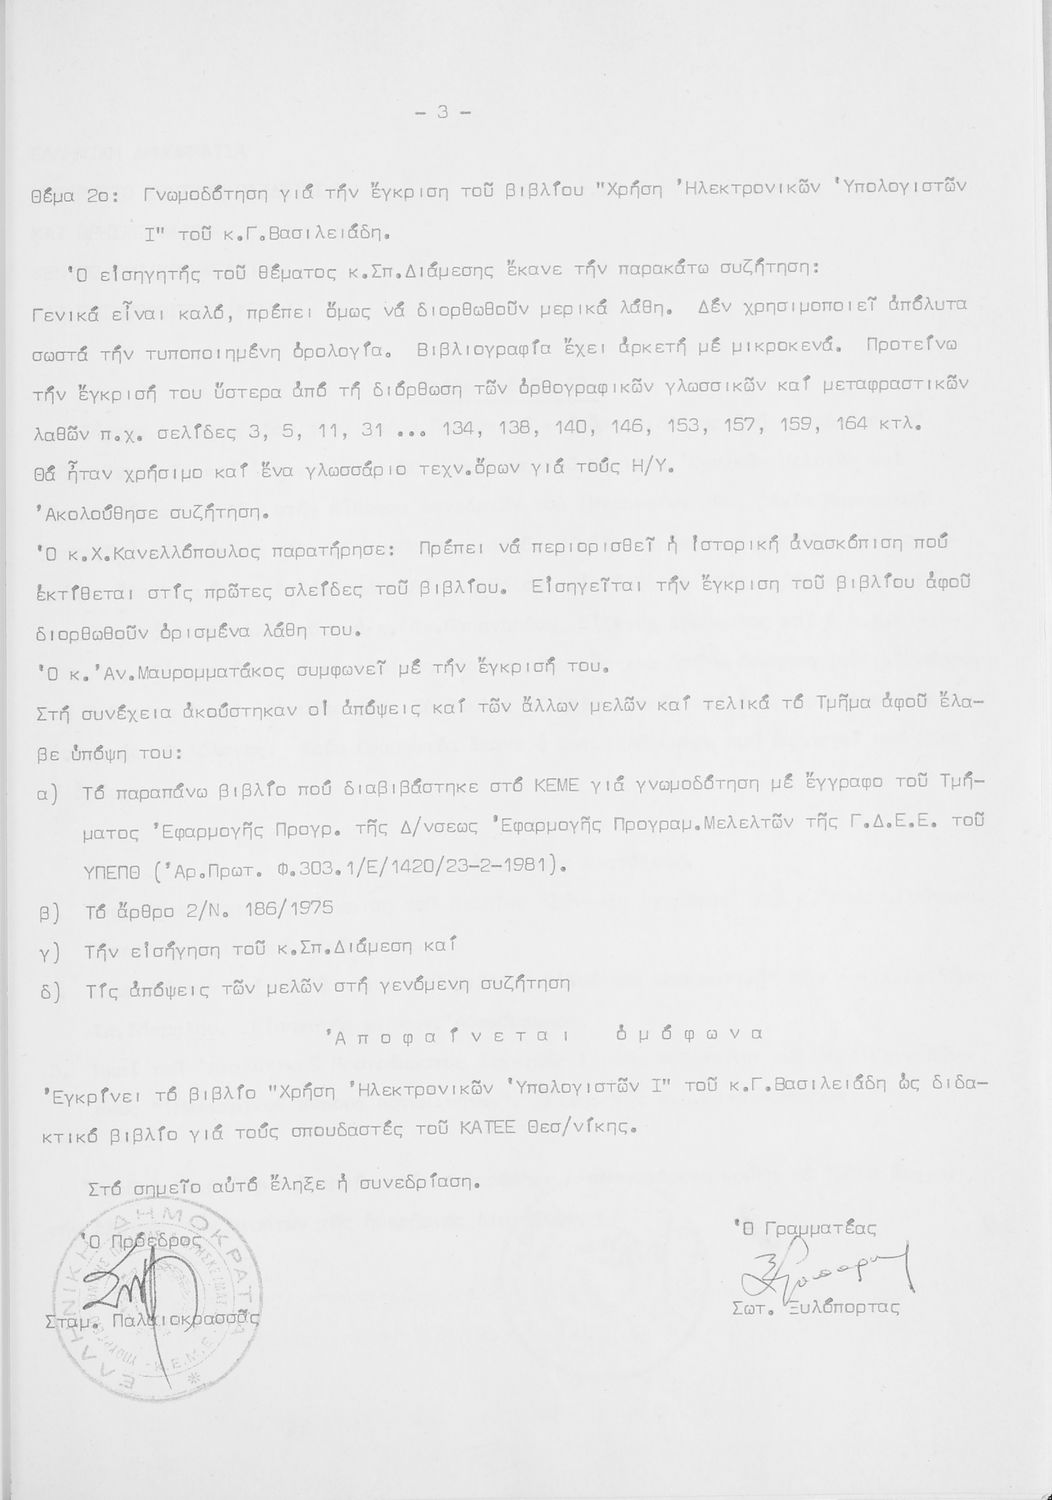 - 3 -
Θέμα 2ο: Γνωμοδότηση γιά τήν ἔγκριση τοῦ βιβλίου "Χρήση Ἠλεκτρονικῶν Ὑπολογιστῶν
Ι" τοῦ κ.Γ.Βασιλειάδη.
Ὁ εἰσηγητής τοῦ θέματος κ.Σπ.Διάμεσης ἔκανε τήν παρακάτω συζήτηση:
Γενικά εἶναι καλό, πρέπει ὅμως νά διορθωθοῦν μερικά λάθη. Δέν χρησιμοποιεῖ ἀπόλυτα
σωστά τήν τυποποιημένη ὁρολογία. Βιβλιογραφία ἔχει ἀρκετή μέ μικροκενά. Προτείνω
τήν ἔγκρισή του ὕστερα ἀπό τή διόρθωση τῶν ὀρθογραφικῶν γλωσσικῶν καί μεταφραστικῶν
λαθῶν π.χ. σελίδες 3, 5, 11, 31 ... 134, 138, 140, 146, 153, 157, 159, 164 κτλ.
Θά ἦταν χρήσιμο καί ἕνα γλωσσάριο τεχν.ὅρων γιά τούς Η/Υ.
Ἀκολούθησε συζήτηση.
Ὁ κ.Χ.Κανελλόπουλος παρατήρησε: Πρέπει νά περιορισθεῖ ἡ ἱστορική ἀνασκόπιση πού
ἐκτίθεται στίς πρῶτες σλείδες τοῦ βιβλίου. Εἰσηγεῖται τήν ἔγκριση τοῦ βιβλίου ἀφοῦ
διορθωθοῦν ὁρισμένα λάθη του.
Ὁ κ.Ἀν.Μαυρομματάκος συμφωνεῖ μέ τήν ἔγκρισή του.
Στή συνέχεια ἀκούστηκαν οἱ ἀπόψεις καί τῶν ἄλλων μελῶν καί τελικά τό Τμῆμα ἀφοῦ ἔλα-
βε ὑπόψη του:
α) Τό παραπάνω βιβλίο πού διαβιβάστηκε στό ΚΕΜΕ γιά γνωμοδότηση μέ ἔγγραφο τοῦ Τμή-
ματος Ἐφαρμογῆς Προγρ. τῆς Δ/νσεως Ἐφαρμογῆς Προγραμ.Μελελτῶν τῆς Γ.Δ.Ε.Ε. τοῦ
ΥΠΕΠΘ (Ἀρ.Πρωτ. Φ.303.1/Ε/1420/23-2-1981).
β) Τό ἄρθρο 2/Ν. 186/1975
γ) Τήν εἰσήγηση τοῦ κ.Σπ.Διάμεση καί
δ) Τίς ἀπόψεις τῶν μελῶν στή γενόμενη συζήτηση
Ἀ π ο φ α ί ν ε τ α ι ὁ μ ό φ ω ν α
Ἐγκρίνει τό βιβλίο "Χρήση Ἠλεκτρονικῶν Ὑπολογιστῶν Ι" τοῦ κ.Γ.Βασιλειάδη ὡς διδα-
κτικό βιβλίο γιά τούς σπουδαστές τοῦ ΚΑΤΕΕ Θεσ/νίκης.
Στό σημεῖο αὐτό ἔληξε ἡ συνεδρίαση.
Ὁ Πρόεδρος
Ὁ Γραμματέας
Σταμ. Παλαιοκρασσᾶς
Σωτ. Ξυλόπορτας
ΕΛΛΗΝΙΚΗ ΔΗΜΟΚΡΑΤΙΑ
Κ.Ε.Μ.Ε.